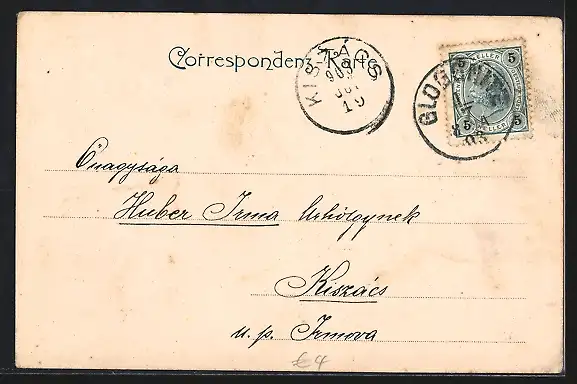 Correspondenz-Karte
KISZÁCS
903
19
5 5
GLOGGNITZ
03
5 5
Őnagysága
Huber Irma Úrhölgynek
Kiszács
u. p. Irmova
€4